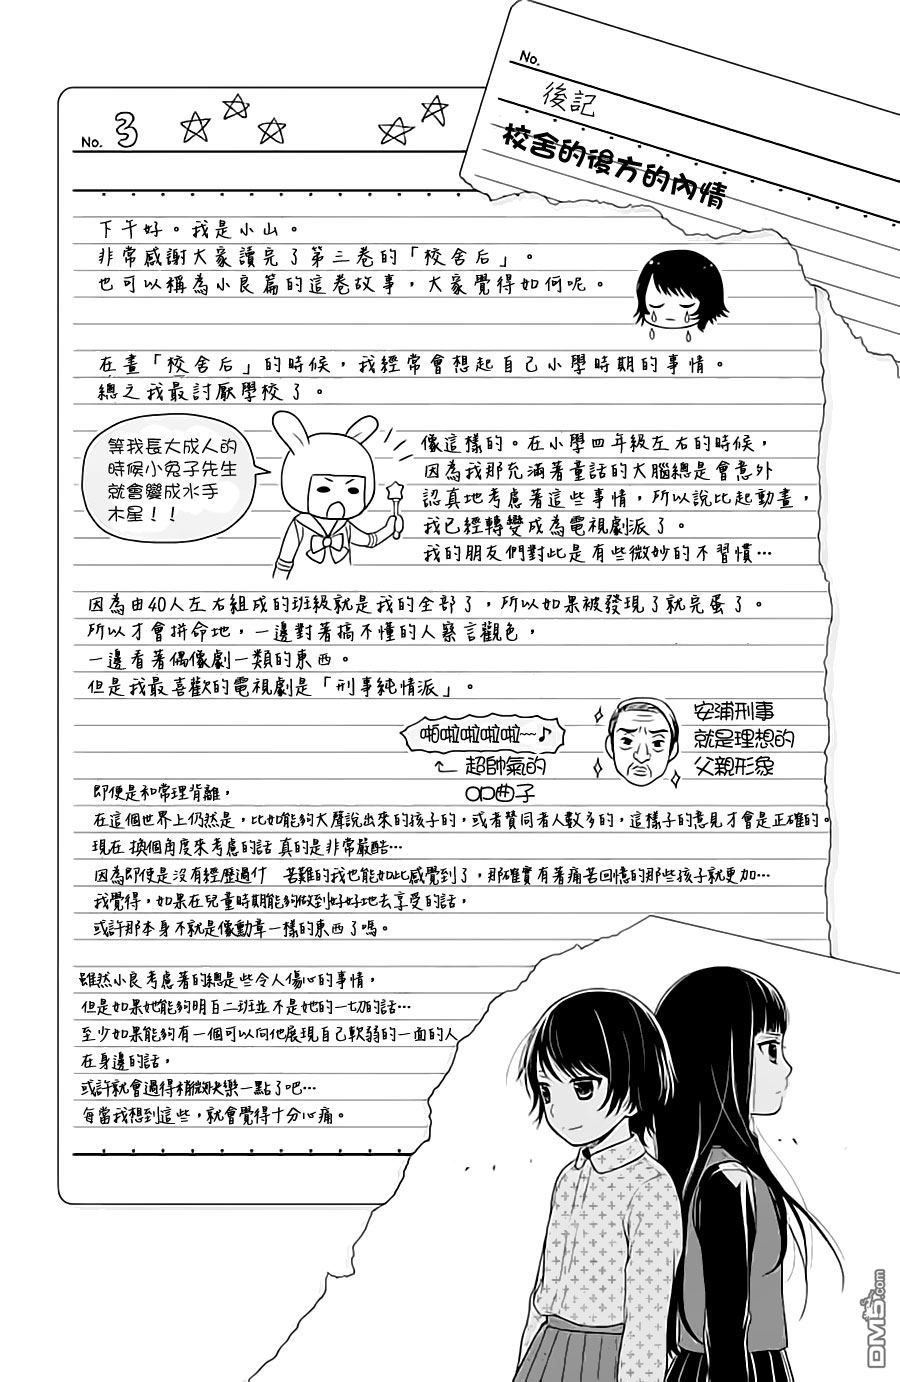 No.
後記
校舍的後方的內情
No. 3
下午好。我是小山。
非常感謝大家讀完了第三卷的「校舍后」。
也可以稱為小良篇的這卷故事，大家覺得如何呢。
在畫「校舍后」的時候，我經常會想起自己小學時期的事情。
總之我最討厭學校了。
等我長大成人的
時候小兔子先生
就會變成水手
木星！！
像這樣的。在小學四年級左右的時候，
因為我那充滿著童話的大腦總是會意外
認真地考慮著這些事情，所以說比起動畫，
我已經轉變成為電視劇派了。
我的朋友們對此是有些微妙的不習慣…
因為由40人左右組成的班級就是我的全部了，所以如果被發現了就完蛋了。
所以才會拼命地，一邊對著搞不懂的人察言觀色，
一邊看著偶像劇一類的東西。
但是我最喜歡的電視劇是「刑事純情派」。
啪啦啦啦啦~~♪
超帥氣的
OP曲子
安浦刑事
就是理想的
父親形象
即便是和常理背離，
在這個世界上仍然是，比如能夠大聲說出來的孩子的，或者贊同者人數多的，這樣子的意見才會是正確的。
現在 換個角度來考慮的話 真的是非常嚴酷…
因為即使是沒有經歷過什 苦難的我也能如此感覺到了，那確實有著痛苦回憶的那些孩子就更加…
我覺得，如果在兒童時期能夠做到好好地去享受的話，
或許那本身不就是像勳章一樣的東西了嗎。
雖然小良考慮著的總是些令人傷心的事情，
但是如果她能夠明白二班並不是她的一切的話…
至少如果能夠有一個可以向他展現自己軟弱的一面的人
在身邊的話，
或許就會過得稍微快樂一點了吧…
每當我想到這些，就會覺得十分心痛。
DM5.com